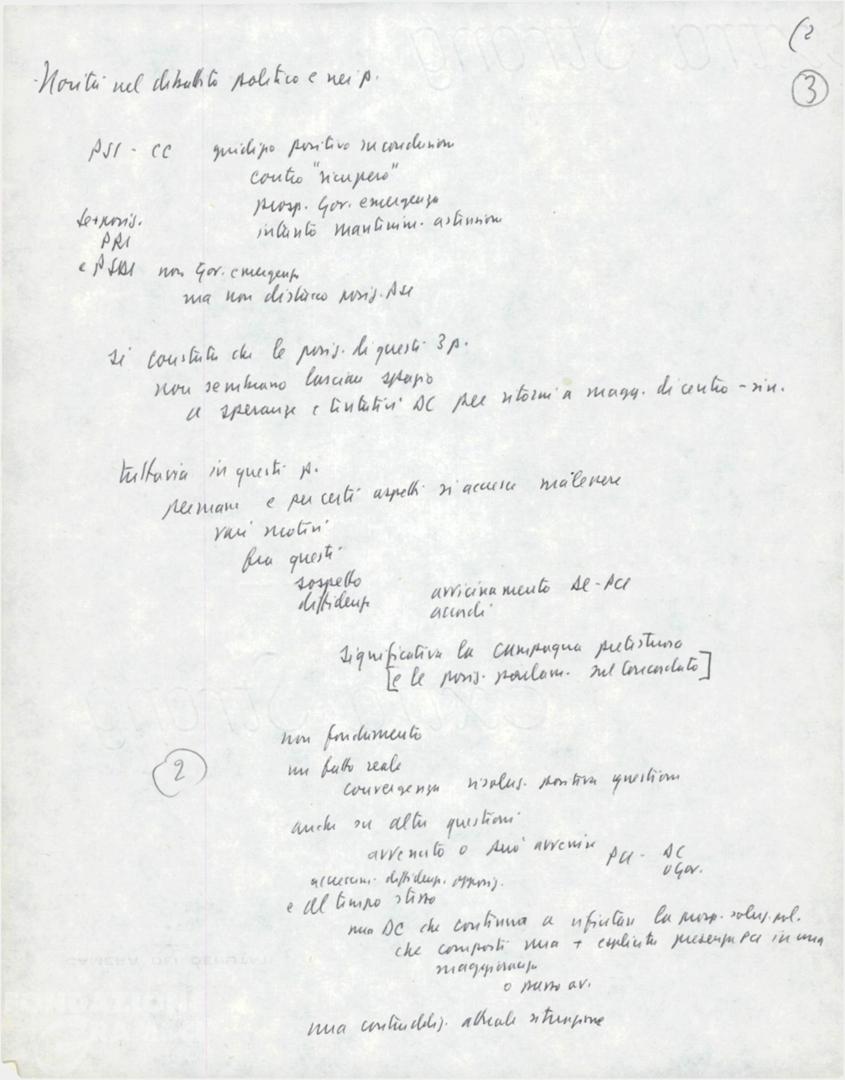 (2
3
Novità nel dibattito politico e nei p.
PSI - CC giudizio positivo su conclusioni
contro "recupero"
prosp. Gov. emergenza
intanto mantenim. astensione
Se + posiz.
PRI
e PSDI non Gov. emergenza
ma non distacco posiz. PSI
Si constata che le posiz. di questi 3 p.
non sembrano lasciare spazio
a speranze e tentativi DC per ritorni a magg. di centro-sin.
tuttavia in questi p.
permane e per certi aspetti si accresce malessere
vari motivi
fra questi
sospetto
diffidenza avvicinamento DC-PCI
accordi
Significativa la campagna pretestuosa
[e le posiz. parlam. sul Concordato]
non fondamento
2
un fatto reale
convergenza risoluz. positiva questioni
anche su altre questioni
avvenuto o può avvenire PCI - DC
o Gov.
accrescim. diffidenz. opposiz.
e al tempo stesso
una DC che continua a rifiutare la prosp. soluz. pol.
che comporti una + esplicita presenza PCI in una
maggioranza
o passo av.
una contraddiz. attuale situazione